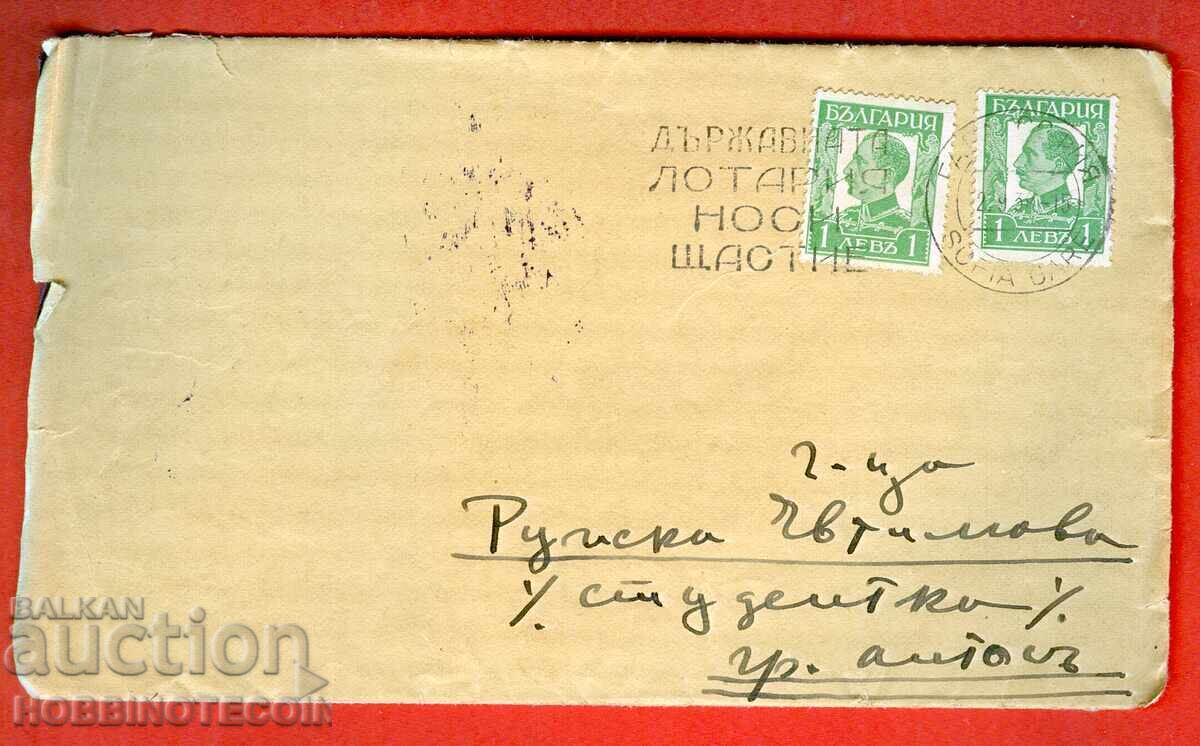 ДЪРЖАВНАТА
ЛОТАРИЯ
НОСИ
ЩАСТИЕ
БЪЛГАРИЯ
1 ЛЕВЪ 1
БЪЛГАРИЯ
1 ЛЕВЪ 1
SOFIA GARE
г-ца
Ружска Евтимова
/. студентка /.
гр. Аитосъ
BALKAN
auction
HOBBINOTECOIN